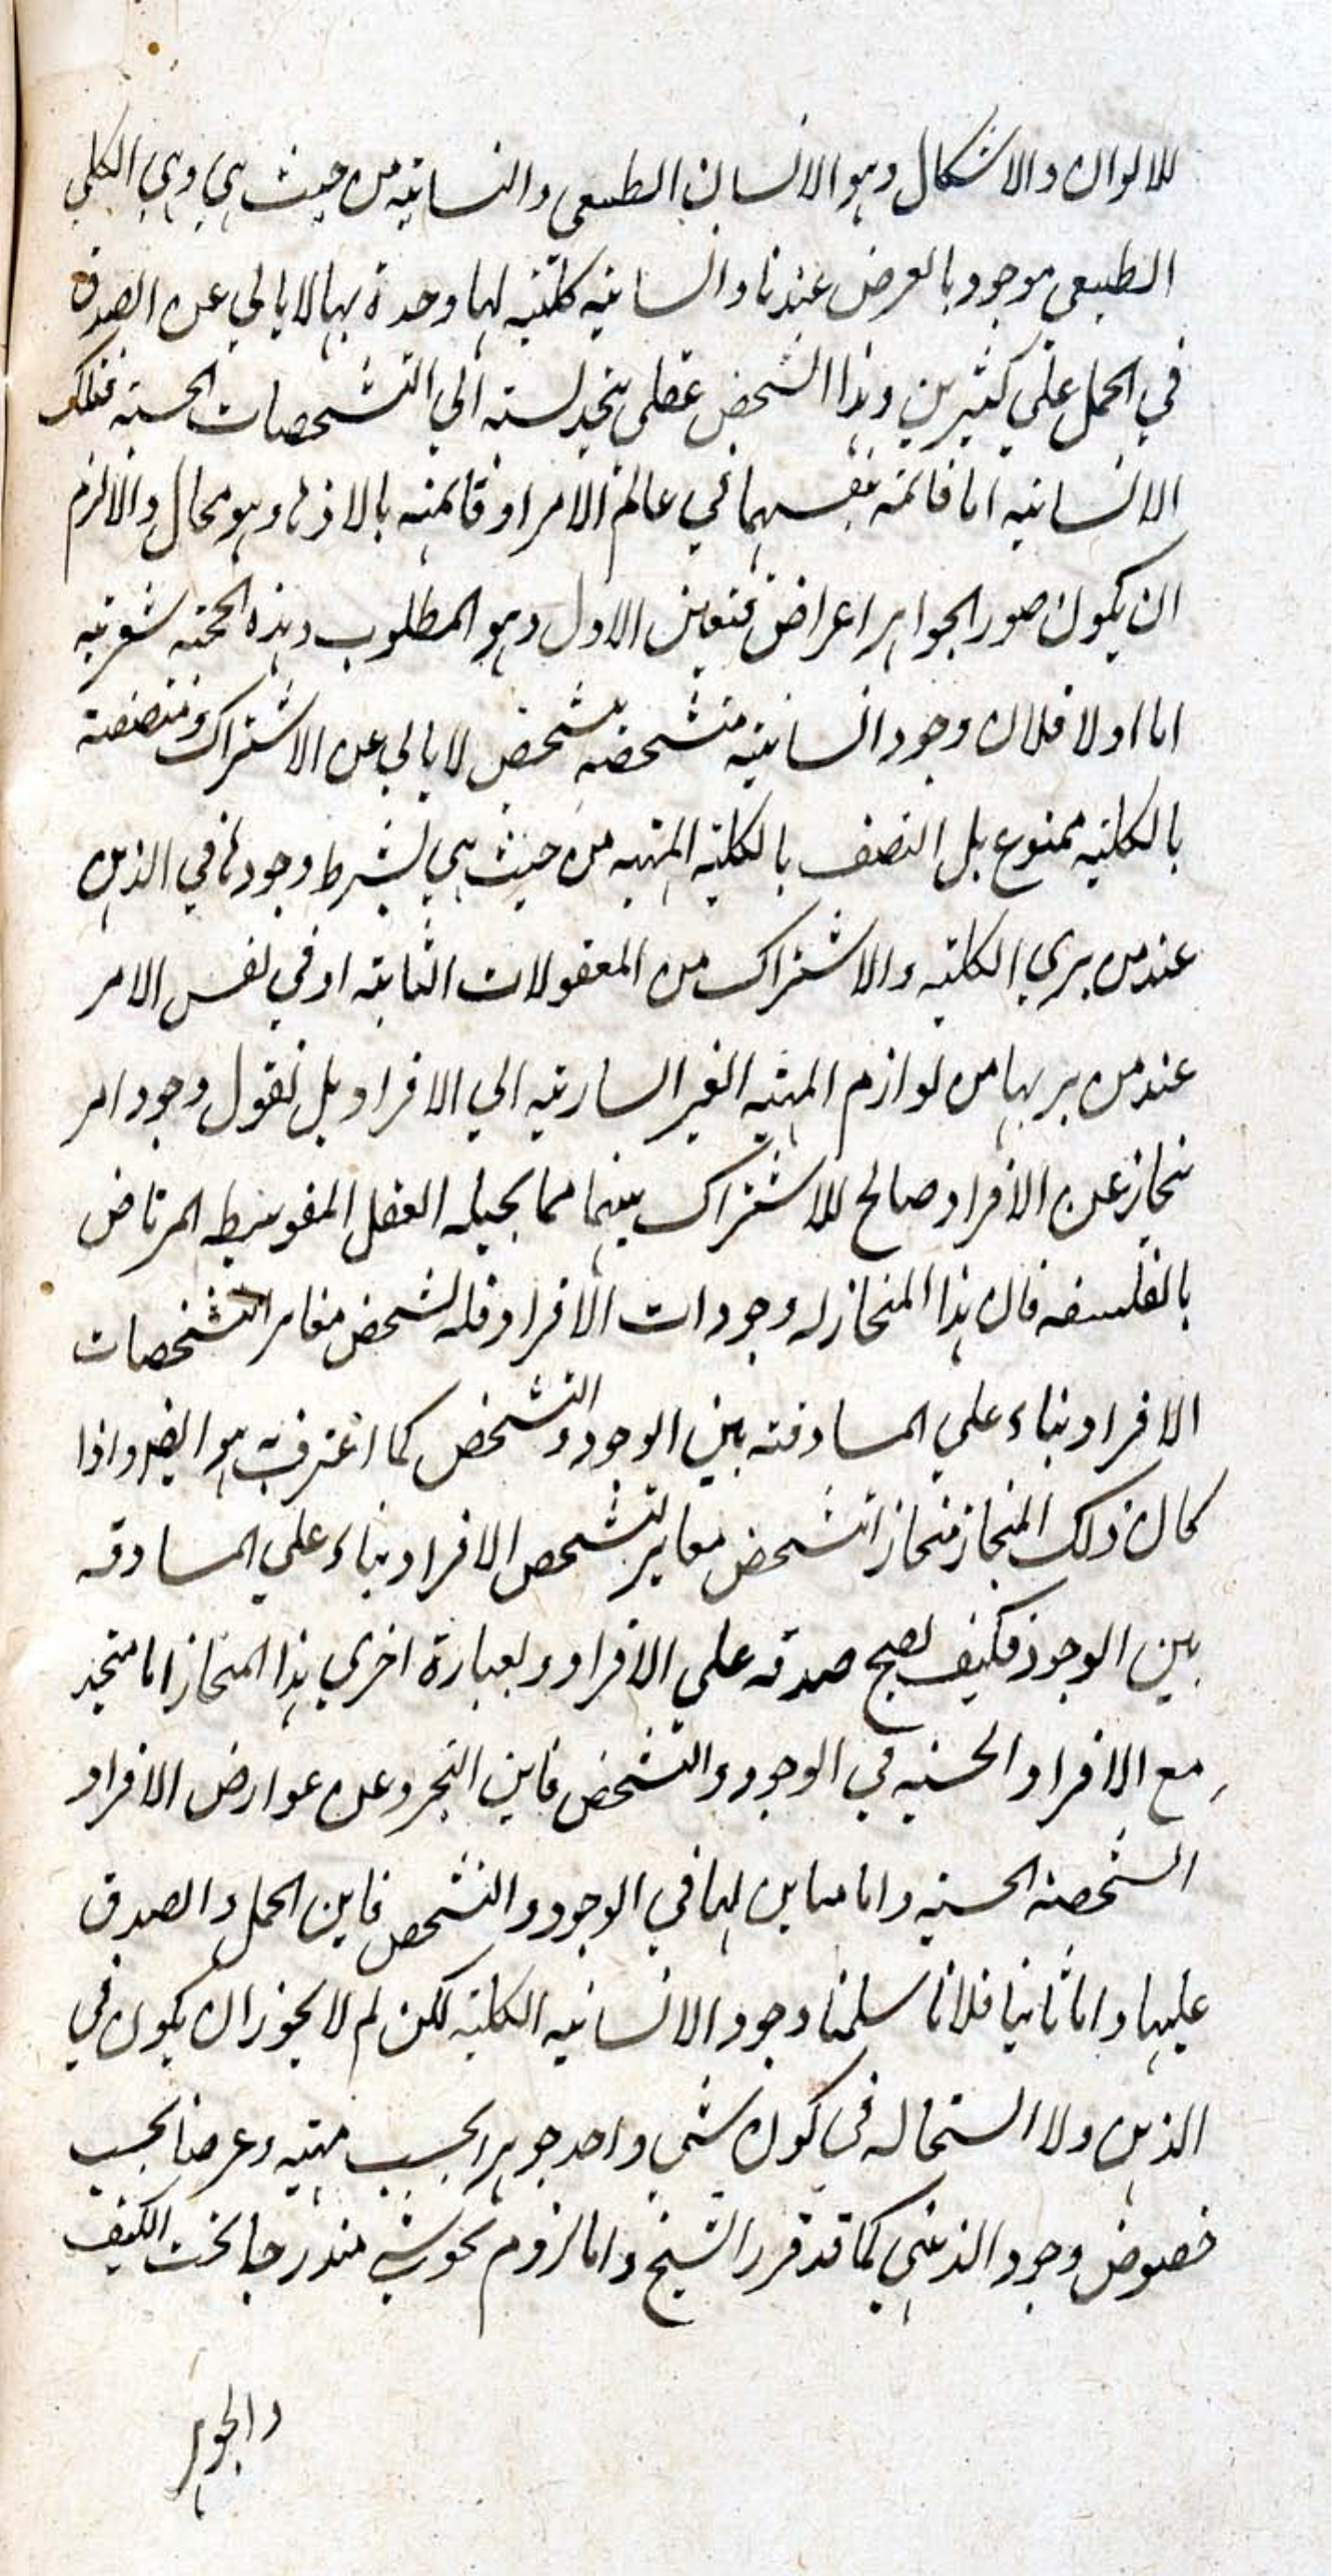 للالوان والاشكال وهو الانسان الطبيعي وانسانيه من حيث هي وهي الكلي
الطبيعي موجود بالعرض عندنا وانسانيه كليه لها وحدة بها لا يابي عن الصدق
في الحمل علي كثيرين وهذا التشخص عقلي نسبته الي التشخصات الحسيه فتلك
الانسانيه اما قائمه بنفسها في عالم الامر او قائمه بالاذهان وهو محال والا لزم
ان يكون صور الجواهر اعراض فتعين الاول وهو المطلوب وهذه الحجة شعريه
اما اولا فلان وجود انسانيه متشخصه بتشخص لا يابي عن الاشتراك ومتصفة
بالكليه ممنوع بل المتصف بالكليه المهيه من حيث هي بشرط وجودها في الذهن
عند من يري الكليه والاشتراك من المعقولات الثانيه او في نفس الامر
عند من يريها من لوازم المهيه الغير الساريه الي الافراد بل نقول وجود امر
منحاز عن الافراد صالح للاشتراك بينها مما يحيله العقل المتوسط المرتاض
بالفلسفه فان هذا المنحاز له وجودات الافراد فله تشخص مغاير لتشخصات
الافراد بناء علي المساوقه بين الوجود والتشخص كما اعترف به هو ايضا واذا
كان ذلك المنحاز منحازا بتشخص مغاير لتشخص الافراد بناء علي المساوقه
بين الوجود فكيف يصح صدقه علي الافراد وبعبارة اخري هذا المنحاز اما متحد
مع الافراد الحسيه في الوجود والتشخص فاين التجرد عن عوارض الافراد
الشخصيه الحسيه واما مباين لها في الوجود والتشخص فاين الحمل والصدق
عليها واما ثانيا فلانا سلمنا وجود الانسانيه الكليه لكن لم لا يجوز ان يكون في
الذهن ولا استحاله في كون شي واحد جوهرا بحسب مهيته وعرضا بحسب
خصوص وجود الذهني كما قد قرر الشيخ واما لزوم كون شي مندرجا تحت الكيف
والجوهر